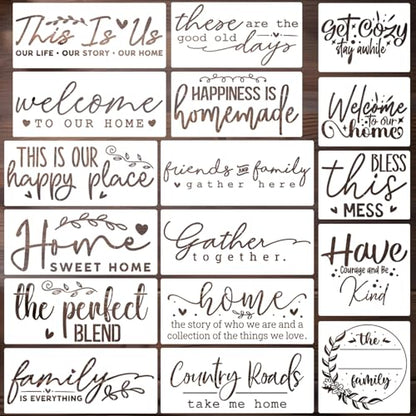 This Is Us
OUR LIFE • OUR STORY • OUR HOME
these are the
good old
days
Get Cozy
stay awhile
welcome
TO OUR HOME
HAPPINESS IS
homemade
Welcome
to our
home
THIS IS OUR
happy place
friends & family
gather here
BLESS
this
MESS
Home
SWEET HOME
Gather
together.
Have
Courage and Be
Kind
the perfect
BLEND
home
the story of who we are and a
collection of the things we love.
the
family
family
IS EVERYTHING
Country Roads
take me home